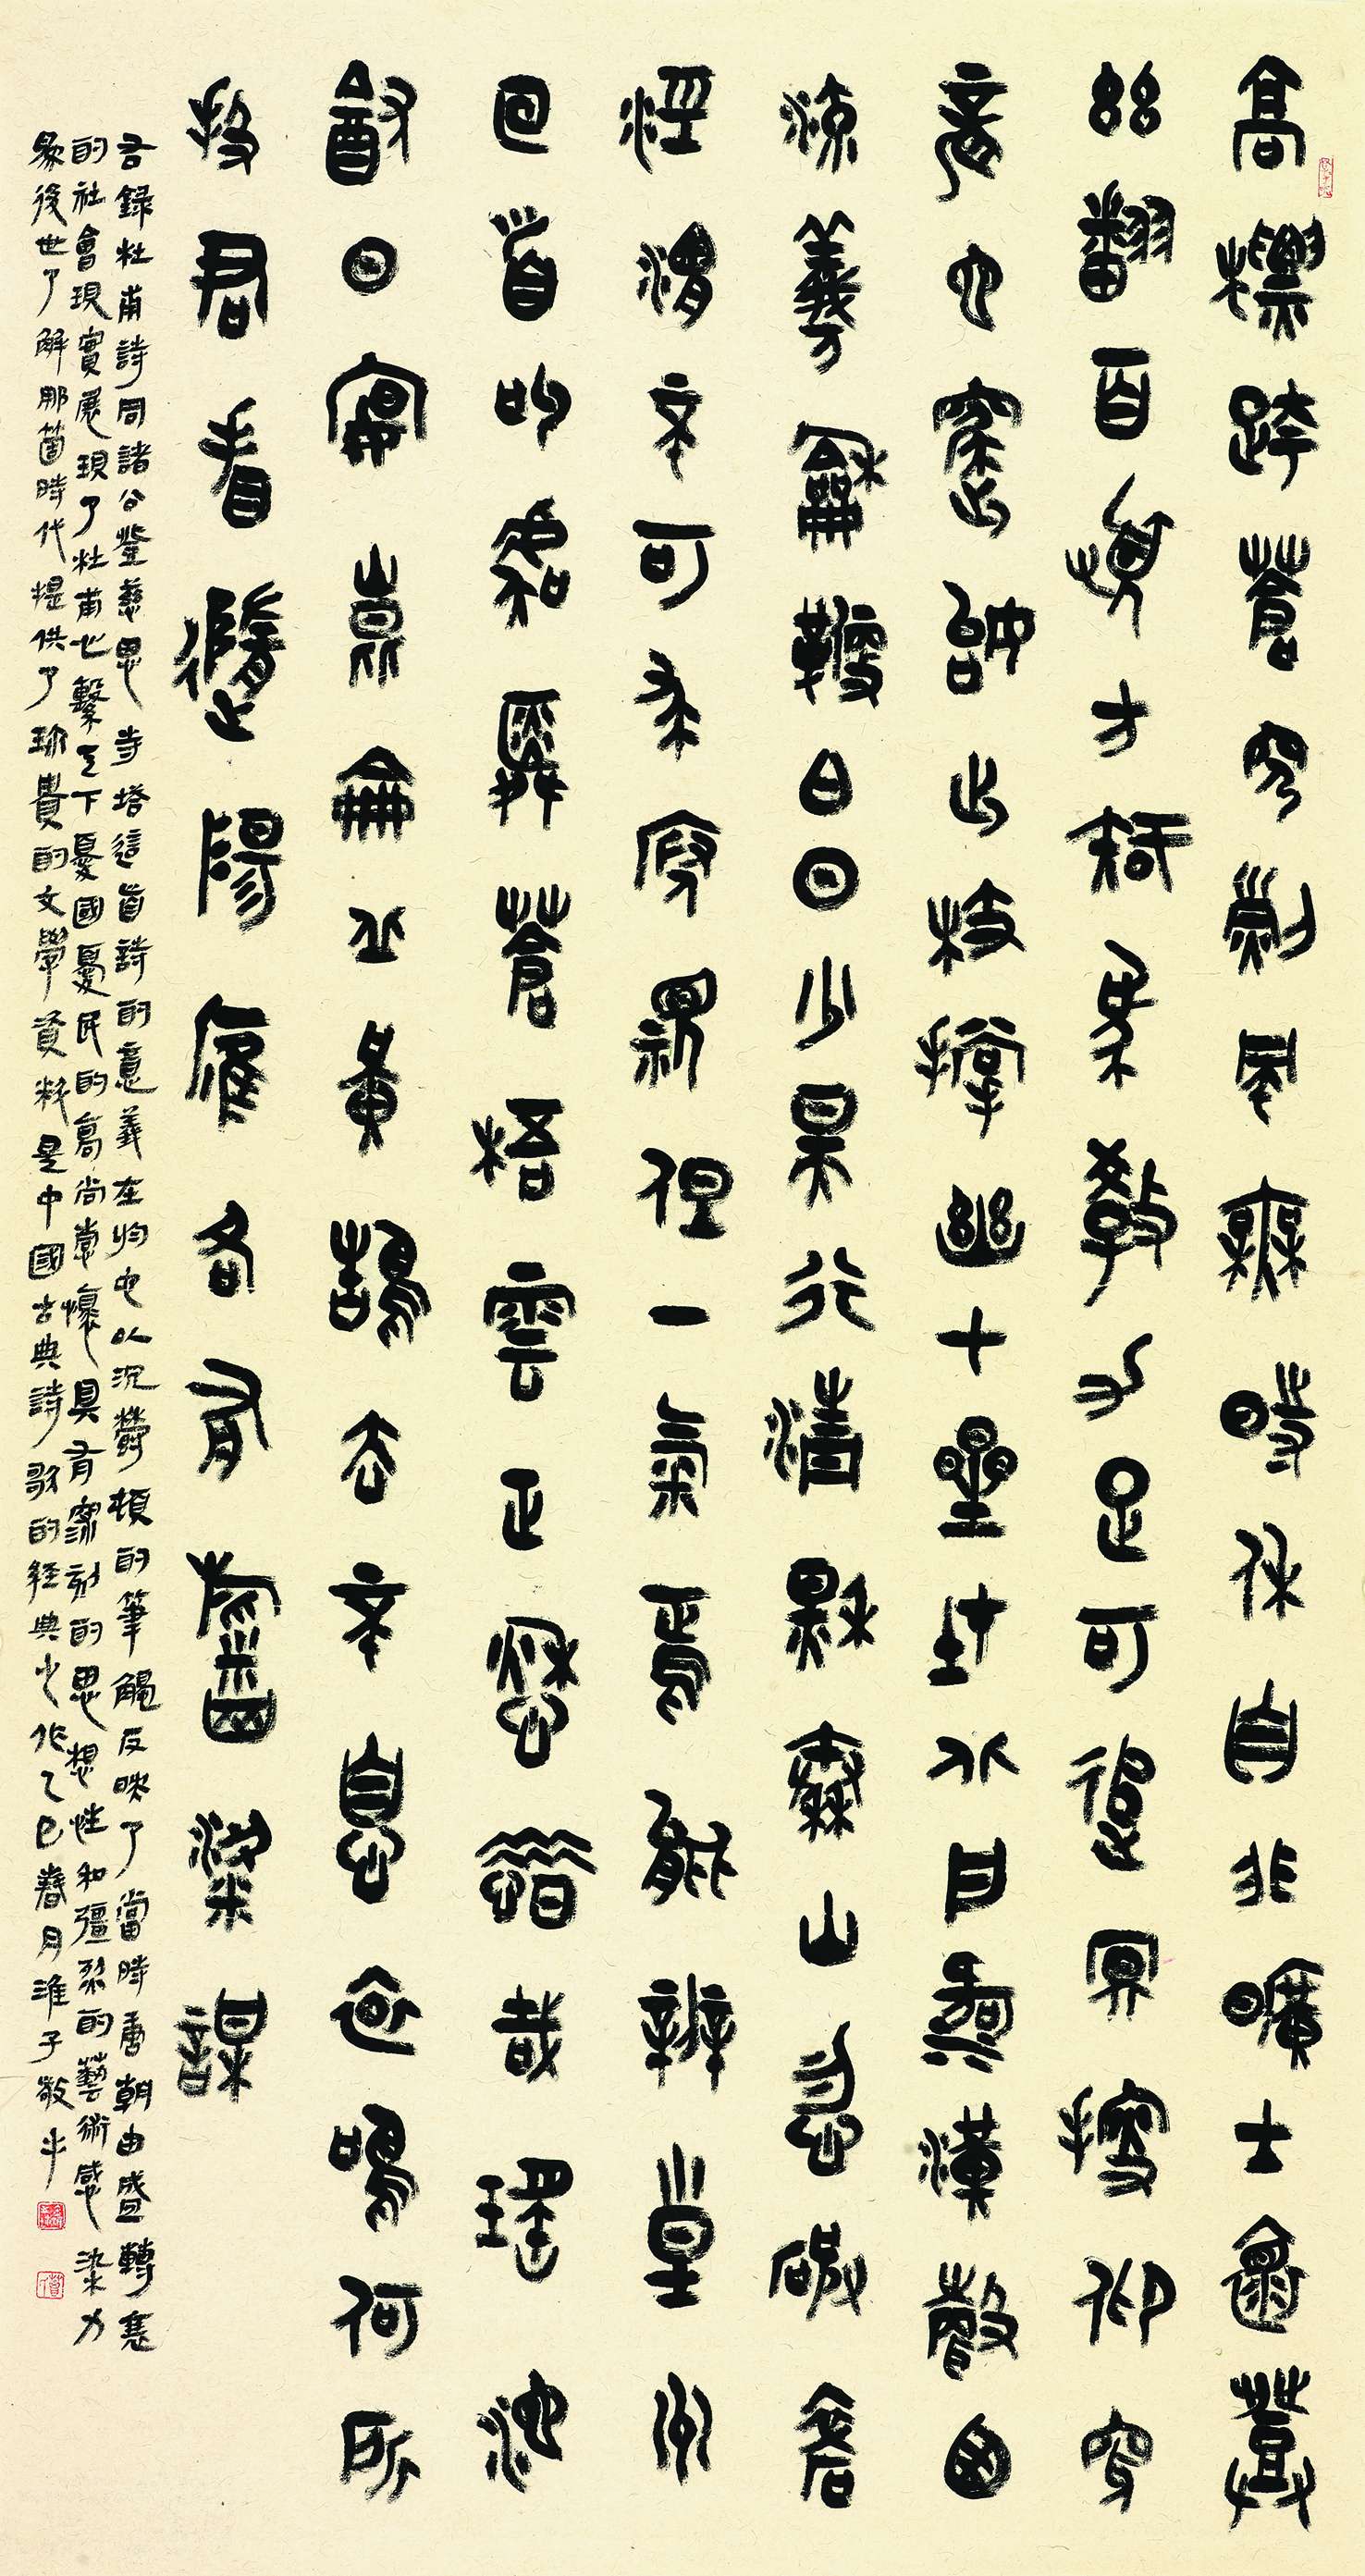 高標跨蒼穹烈風無時休自非曠士懷登
茲翻百憂方知象教力足可追冥搜仰穿
龍蛇窟始出枝撐幽七星封北戶河漢聲西
流羲和鞭白日少昊行清秋秦山忽破碎
涇渭不可求俯視但一氣焉能辨皇州
回首叫虞舜蒼梧雲正愁惜哉瑤池
飲日晏崑崙丘黃鵠去不息哀鳴何所
投君看隨陽雁各有稻粱謀
右錄杜甫詩同諸公登慈恩寺塔這首詩的意義在於它以沉鬱頓的筆觸反映了當時唐朝由盛轉衰
的社會現實展現了杜甫心繫天下憂國憂民的高尚懷具有深刻的思想性和強烈的藝術感染力
為後世了解那箇時代提供了珍貴的文學資料是中國古典詩歌的經典之作乙巳春月淮子敬斗